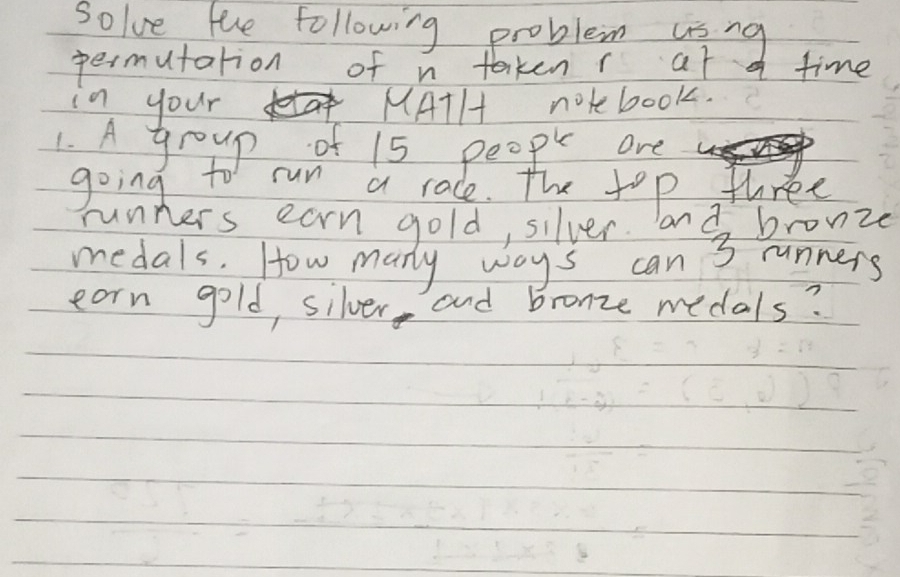 Solve the following problem using
permutation of n taken r at a time
in your MATH notebook.
1. A group of 15 people are
going to run a race. The top three
runners earn gold, silver. and bronze
medals. How many ways can 3 runners
earn gold, silver, and bronze medals?